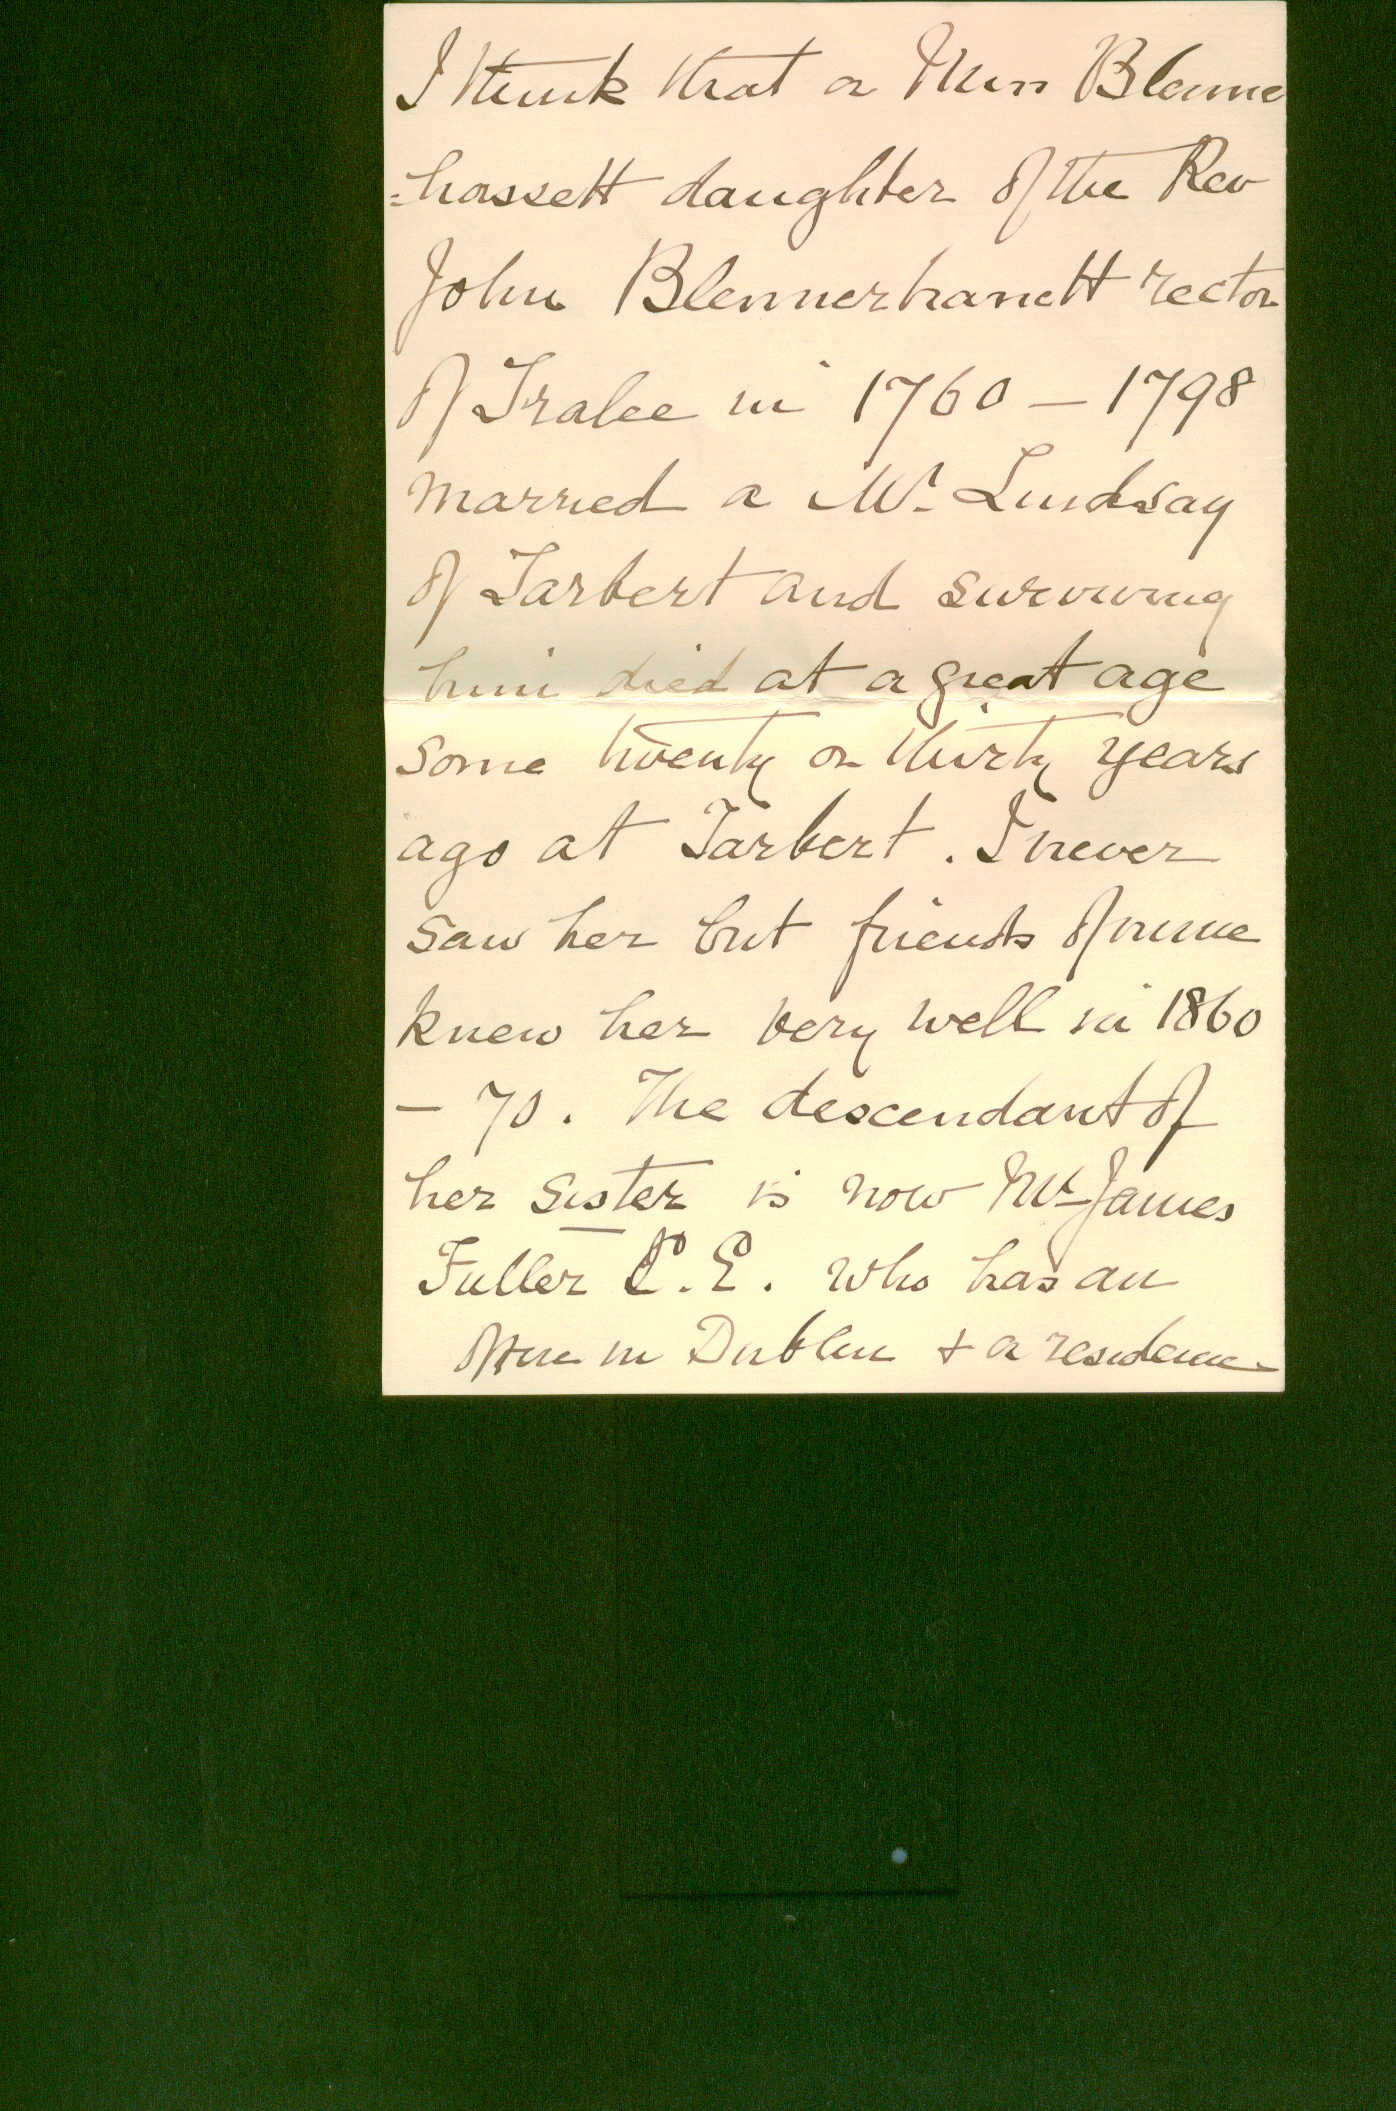 I think that a Miss Blenne
=hassett daughter of the Rev
John Blennerhassett rector
of Tralee in 1760 – 1798
married a Mr. Lindsay
of Tarbert and surviving
him died at a great age
some twenty or thirty years
ago at Tarbert. I never
saw her but friends of mine
knew her very well in 1860
– 70. The descendant of
her sister is now Mr James
Fuller C.E. who has an
office in Dublin & a residence